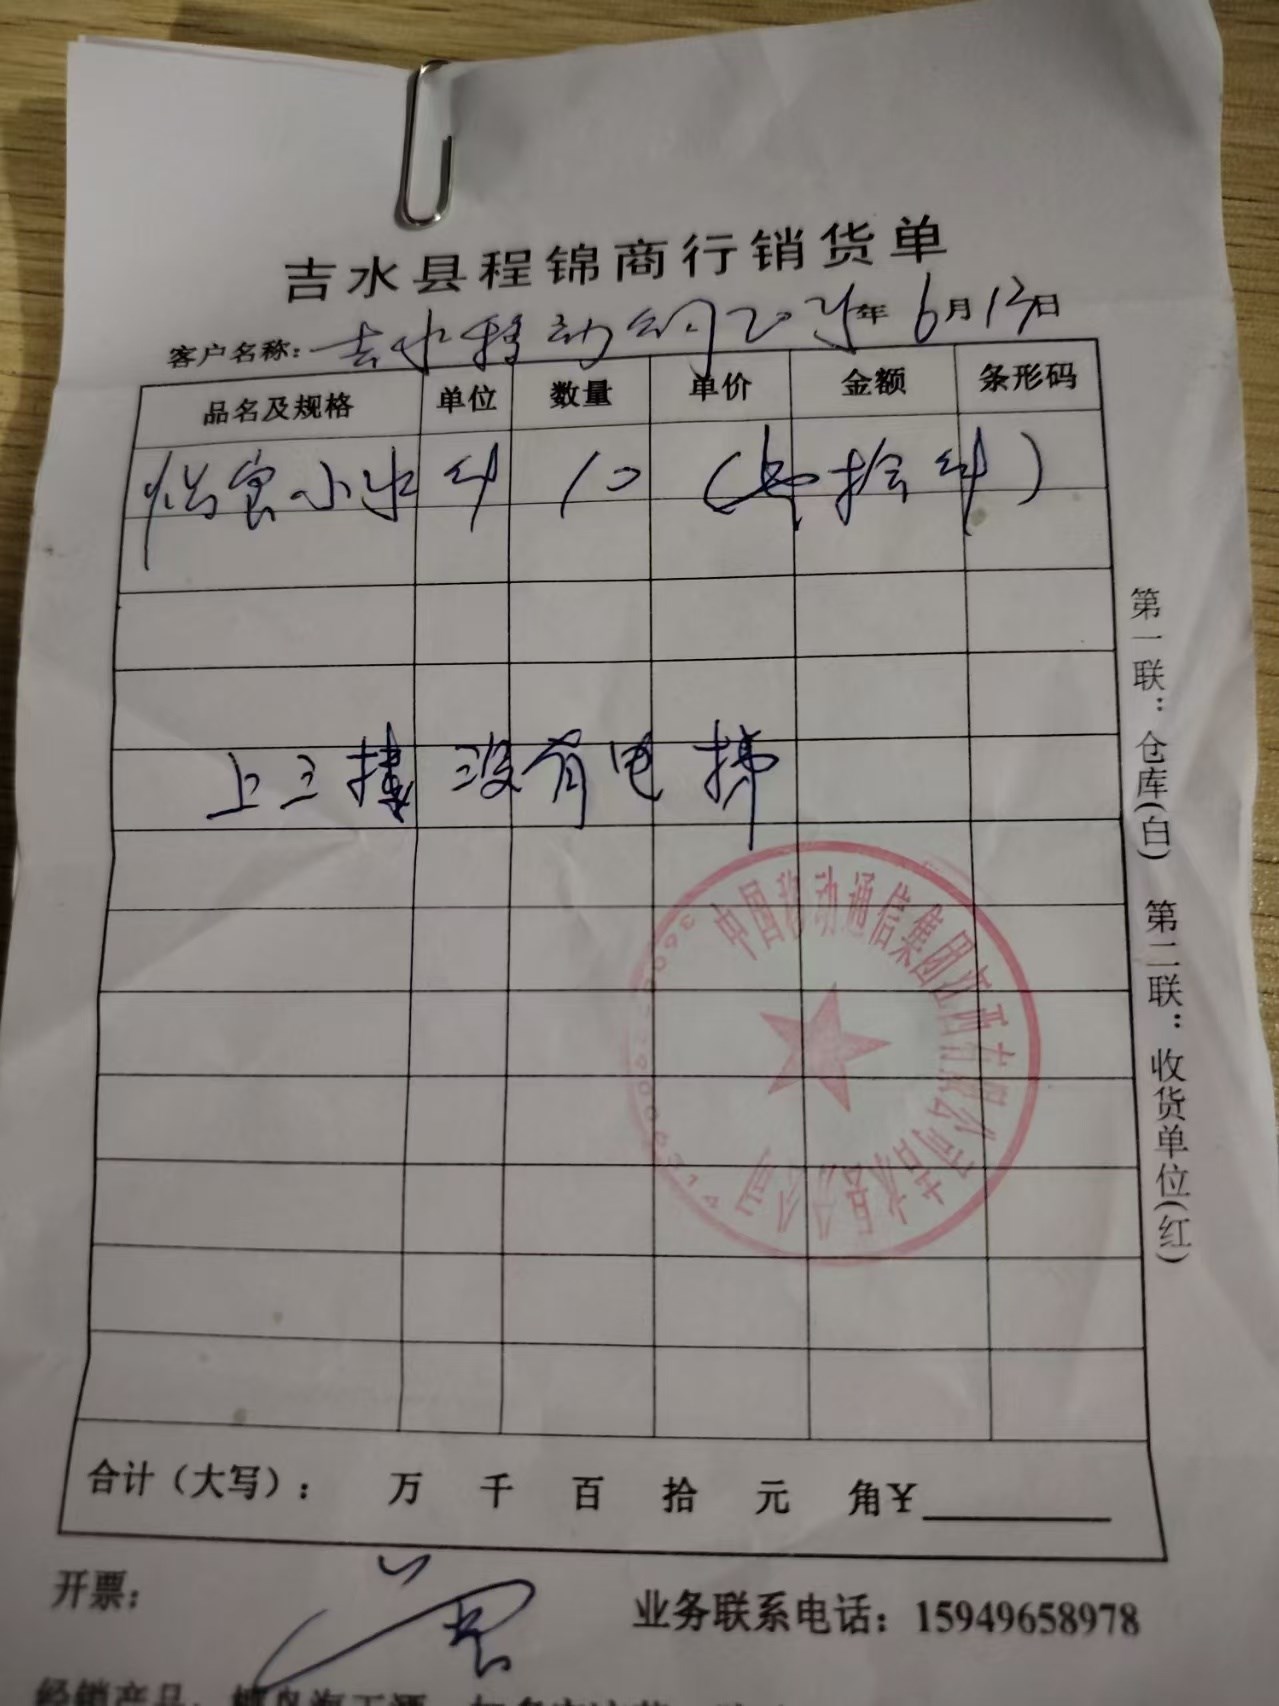 吉水县程锦商行销货单
客户名称：吉水移动公司 2025年6月13日
品名及规格 单位 数量 单价 金额 条形码
怡宝小水 件 10 （壹拾件）
上三楼没有电梯
中国移动通信集团江西有限公司吉水县分公司
合计（大写）： 万 千 百 拾 元 角￥
开票：
业务联系电话：15949658978
经销产品：
第一联：仓库(白) 第二联：收货单位(红)